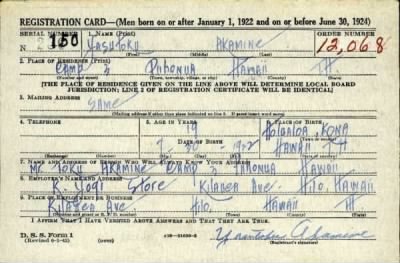 REGISTRATION CARD—(Men born on or after January 1, 1922 and on or before June 30, 1924)
SERIAL NUMBER 1. NAME (Print) ORDER NUMBER
150 YASUTOKU AKAMINE 12,068
(First) (Middle) (Last)
2. PLACE OF RESIDENCE (Print)
CAMP 3 PUHONUA HAWAII TH
(Number and street) (Town, township, village, or city) (County) (State)
[THE PLACE OF RESIDENCE GIVEN ON THE LINE ABOVE WILL DETERMINE LOCAL BOARD
JURISDICTION; LINE 2 OF REGISTRATION CERTIFICATE WILL BE IDENTICAL]
3. MAILING ADDRESS
SAME
[Mailing address if other than place indicated on line 2. If same insert word same]
4. TELEPHONE 5. AGE IN YEARS
19 HOLUALOA, KONA
DATE OF BIRTH
HAWAII TH
(Exchange) (Number) (Mo.) (Day) (Yr.)
7. NAME AND ADDRESS OF PERSON WHO WILL ALWAYS KNOW YOUR ADDRESS
Mr. TOKU AKAMINE CAMP 3 PUHONUA HAWAII
8. EMPLOYER'S NAME AND ADDRESS
K. YOGI STORE KILAUEA AVE. HILO, HAWAII
9. PLACE OF EMPLOYMENT OR BUSINESS
KILAUEA AVE. HILO, HAWAII TH
(Number and street or R. F. D. number) (Town) (County) (State)
I AFFIRM THAT I HAVE VERIFIED ABOVE ANSWERS AND THAT THEY ARE TRUE.
D. S. S. Form 1
(Revised 6-9-41)
Akamine
(Registrant's signature)